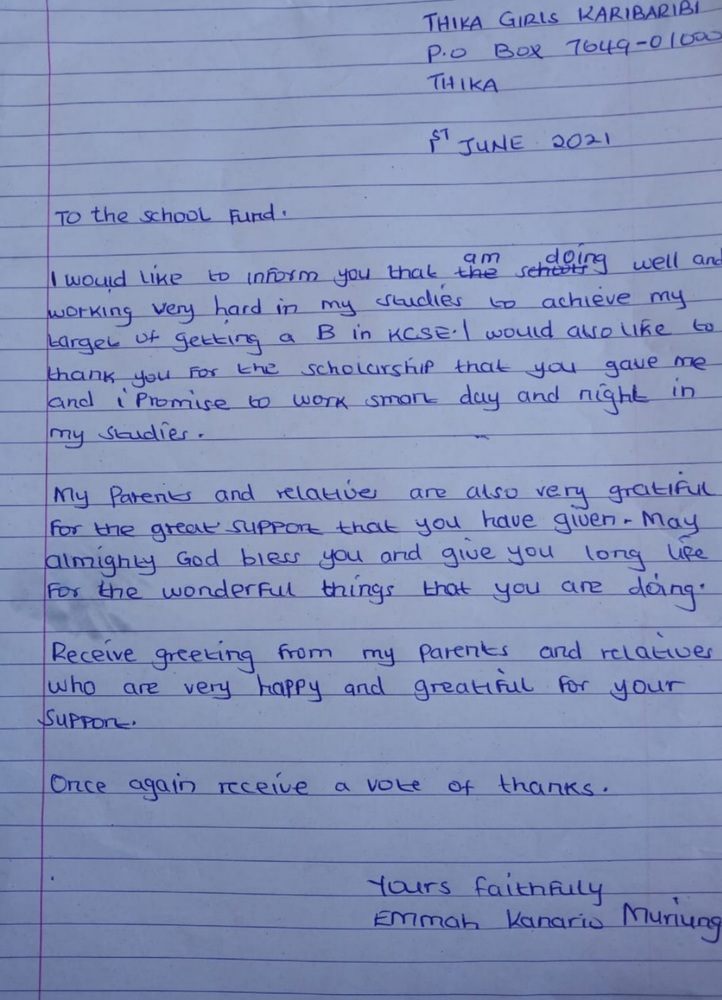 THIKA GIRLS KARIBARIBI
P.O BOX 7649-01000
THIKA
1ST JUNE 2021
To the school Fund.
I would like to inform you that am doing well and
working very hard in my studies to achieve my
target of getting a B in KCSE. I would also like to
thank you for the scholarship that you gave me
and i promise to work smart day and night in
my studies.
My parents and relatives are also very gratiful
for the great support that you have given. May
almighty God bless you and give you long life
for the wonderful things that you are doing.
Receive greeting from my parents and relatives
who are very happy and greatiful for your
support.
Once again receive a vote of thanks.
Yours faithfuly
Emmah Kanario Muriung